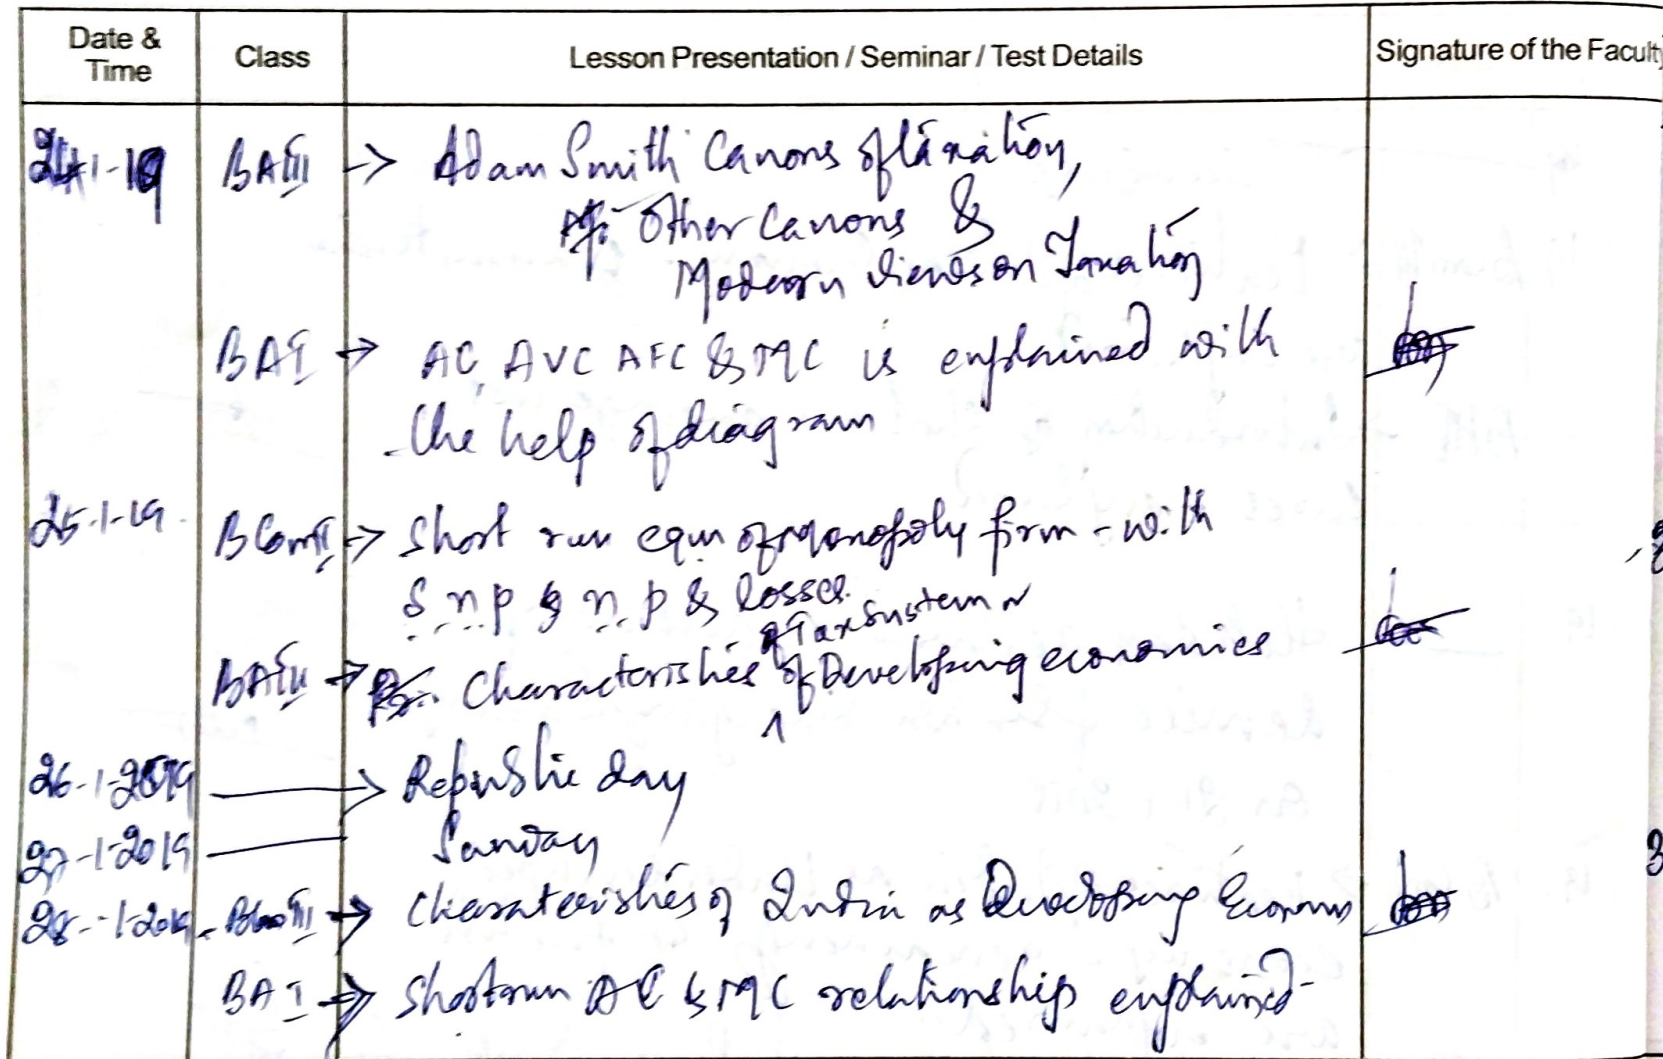 Date & Time Class Lesson Presentation / Seminar / Test Details Signature of the Faculty
24-1-19 BA III → Adam Smith Canons of taxation,
Other Canons &
Modern views on Taxation
BA I → AC, AVC AFC & MC is explained with
the help of diagram
25-1-19 BCom II → Short run eqm of Monopoly firm - with
S n p & n p & losses.
of Tax System
BA III → Characteristics of Developing economies
26-1-2019 → Republic day
27-1-2019 Sunday
28-1-2019 III → Charateristics of India as Developing Economy
BA I → Shortrun AC & MC relationship explained